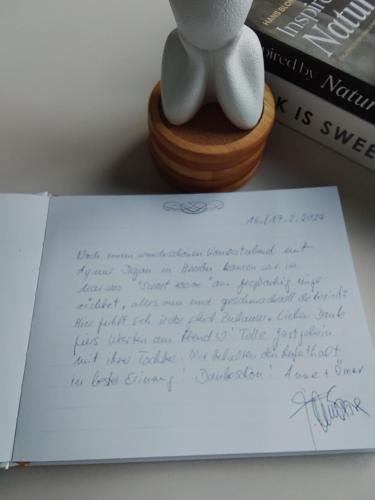 HANS BLOM
Inspired
Natur
pired by Natur
K IS SWEE
16./17.2.2024
Nach einem wunderschönen Konzertabend mit
in Heerlen kamen wir in
"sweet room" an. großartig einge-
richtet, alles neu und geschmackvoll dekoriert!
Hier fühlt sich jeder gleich Zuhause. Lieben Dank
fürs Warten am Abend ♡! Tolle Gastgeberin
mit ihrer Tochter. Wir behalten den Aufenthalt
in bester Erinnung! Dankeschön! Anne + Ömer